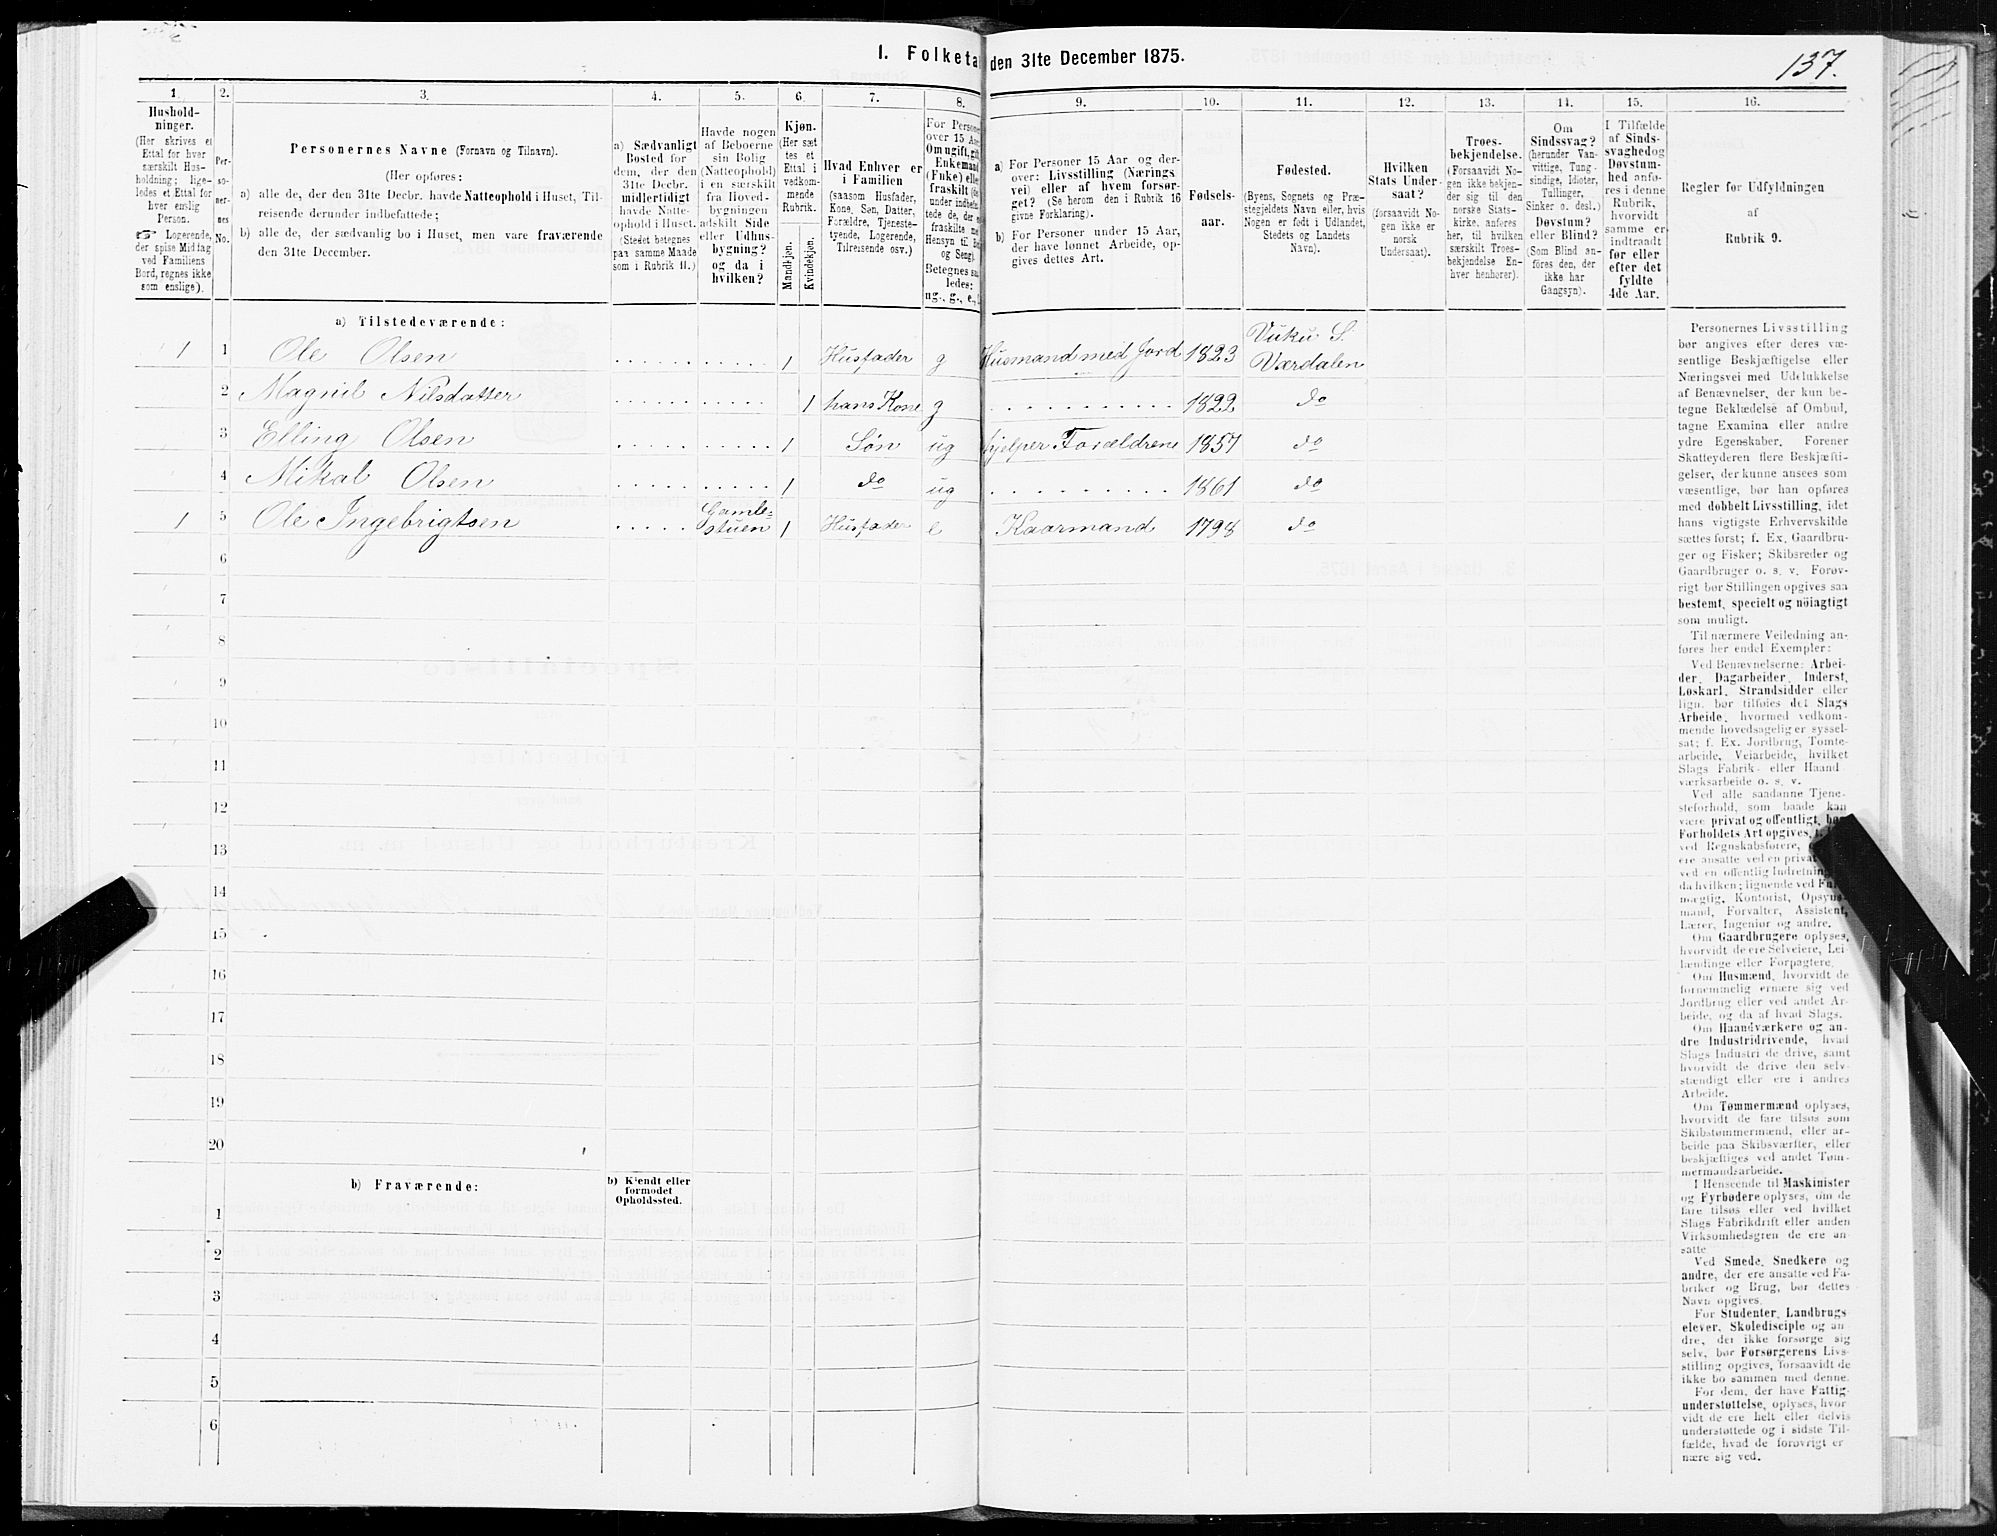 1. Folketa den 31te December 1875.
137.
1. 2. 3. 4. 5. 6. 7. 8. 9. 10. 11. 12. 13. 14. 15. 16.
Hushold-
ninger.
(Her skrives et
Ettal for hver
særskilt Hus-
holdning; lige-
ledes et Ettal for
hver enslig
Person.
☞ Logerende,
der spise Middag
ved Familiens
Bord, regnes ikke
som enslige).
Per-
so-
ner-
nes
No.
Personernes Navne (Fornavn og Tilnavn).
(Her opføres:
a) alle de, der den 31te Decbr. havde Natteophold i Huset, Til-
reisende derunder indbefattede;
b) alle de, der sædvanlig bo i Huset, men vare fraværende
den 31te December.
a) Sædvanligt
Bosted for
dem, der den
31te Decbr.
midlertidigt
havde Natte-
ophold i Huset.
(Stedet betegnes
paa samme Maade
som i Rubrik 11.)
Havde nogen
af Beboerne
sin Bolig
(Natteophold)
i en særskilt
fra Hoved-
bygningen
adskilt Side
eller Udhus-
bygning?
og da i
hvilken?
Kjøn.
(Her sæt
tes et
Ettal i
vedkom-
mende
Rubrik.
Mandkjøn.
Kvindekjøn.
Hvad Enhver er
i Familien
(saasom Husfader,
Kone, Søn, Datter,
Forældre, Tjeneste-
tyende, Logerende,
Tilreisende osv.)
For Persone
over 15 Aar
Om ugift, gift
Enkemand
(Enke) eller
fraskilt
under indbefat
tede de,
fraskilte
Hensyn til
og Seng).
Betegnes saa
ledes:
ug., g., e.,
a) For Personer 15 Aar og der-
over: Livsstilling (Nærings
vei) eller af hvem forsør-
get? (Se herom den i Rubrik 16
givne Forklaring.)
b) For Personer under 15 Aar,
der have lønnet Arbeide, op-
gives dettes Art.
Fødsels-
aar.
Fødested.
(Byens, Sognets og Præ-
stegjeldets Navn eller, hvis
Nogen er født i Udlandet,
Stedets og Landets
Navn).
Hvilken
Stats Under-
saat?
(forsaavidt No-
gen ikke er
norsk
Undersaat).
Troes-
bekjendelse.
(Forsaavidt No-
gen ikke bekjen-
der sig til den
norske Stats-
kirke, anføres
her, til hvilken
særskilt Troes-
bekjendelse En-
hver henhører).
Om
Sindssvag?
(herunder Van-
vittige, Tung-
sindige, Idioter,
Tullinger,
Sinker o. desl.)
Døvstum?
eller Blind?
(Som Blind an-
føres den, der
ikke har
Gangsyn).
I Tilfælde
af Sinds-
svaghed og
Døvstum-
hed anfø-
res i denne
Rubrik,
hvorvidt
samme er
indtraadt
før eller
efter det
fyldte
4de Aar.
Regler for Udfyldningen
af
Rubrik 9.
a) Tilstedeværende:
1 1 Ole Olsen 1 Husfader g Husmand med Jord 1823 Vuku S. Værdalen
2 Magnil Nilsdatter 1 hans Kone g 1822 do
3 Elling Olsen 1 Søn ug hjelper Forældrene 1857 do
4 Mikal Olsen 1 do ug 1861 do
1 5 Ole Ingebrigtsen Gamle-stuen 1 Husfader e Kaarmand 1798 do
6
7
8
9
10
11
12
13
14
15
16
17
18
19
20
b) Fraværende:
b) Kjendt eller
formodet
Opholdssted.
1
2
3
4
5
6
Personernes Livsstilling
bør angives efter deres væ-
sentlige Beskjæftigelse eller
Næringsvei med Udelukkelse
af Benævnelser, der kun be-
tegne Beklædelse af Ombud,
tagne Examina eller andre
ydre Egenskaber. Forener
Skatteyderen flere Beskjæfti-
gelser, der kunne ansees som
væsentlige, bør han opføres
med dobbelt Livsstilling, idet
hans vigtigste Erhvervskilde
sættes først; f. Ex. Gaardbru-
ger og Fisker; Skibsreder og
Gaardbruger o. s. v. Forøv-
rigt bør Stillingen opgives saa
bestemt, specielt og nöiagtigt
som muligt.
Til nærmere Veiledning an-
føres her endel Exempler:
Ved Benævnelserne: Arbei-
der, Dagarbeider, Inderst,
Løskarl, Strandsidder eller
lign. bør tilføies det Slags
Arbeide, hvormed vedkom-
mende hovedsagelig er syssel-
sat; f. Ex. Jordbrug, Tomte-
arbeide, Veiarbeide, hvilket
Slags Fabrik- eller Haand
værksarbeide o. s. v.
Ved alle saadanne Tjene-
steforhold, som baade kan
være privat og offentligt, bør
Forholdets Art opgives,
ved Regnskabsførere,
ere ansatte ved en privat
ved en offentlig Indretning
da hvilken; lignende ved Fuld-
mægtig, Kontorist, Opsyns-
mand, Forvalter, Assistent,
Lærer, Ingeniør og andre.
Om Gaardbrugere oplyses,
hvorvidt de ere Selveiere, Lei-
lændinge eller Forpagtere.
Om Husmænd, hvorvidt de
fornemmelig ernære sig ved
Jordbrug eller ved andet Ar-
beide, og da af hvad Slags.
Om Haandværkere og an-
dre Industridrivende, hvad
Slags Industri de drive, samt
hvorvidt de drive den selv-
stændigt eller ere i andres
Arbeide.
Om Tømmermænd oplyses,
hvorvidt de fare tilsøs som
Skibstømmermænd, eller ar-
beide paa Skibsværfter, eller
beskjæftiges ved andet Tøm-
mermandsarbeide.
I Henseende til Maskinister
og Fyrbødere oplyses, om de
fare tilsøs eller ved hvilket
Slags Fabrikdrift eller anden
Virksomhedsgren de ere an-
satte
Ved Smede, Snedkere og
andre, der ere ansatte ved Fa-
briker og Brug, bør dettes
Navn opgives.
For Studenter, Landbrugs
elever, Skoledisciple og an-
dre, der ikke forsørge sig
selv, bør Forsørgerens Livs-
stilling opgives, forsaavidt de
ikke bo sammen med denne.
For dem, der have Fattig-
understøttelse, oplyses, hvor-
vidt de ere helt eller delvis
understøttede og i sidste Til-
fælde, hvad de forøvrigt er
nære sig ved.